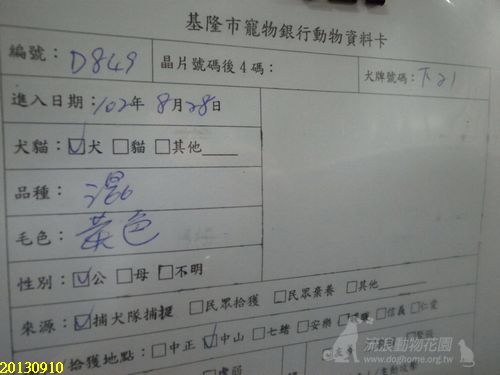 基隆市寵物銀行動物資料卡
編號：D849 晶片號碼後4碼： 犬牌號碼：下21
進入日期：102年8月28日
犬貓：☑犬 □貓 □其他
品種：混
毛色：茶色
性別：☑公 □母 □不明
來源：☑捕犬隊捕捉 □民眾拾獲 □民眾棄養 □其他
拾獲地點：□中正 ☑中山 □七堵 □安樂 □信義 □仁愛
流浪動物花園
www.doghome.org.tw
20130910